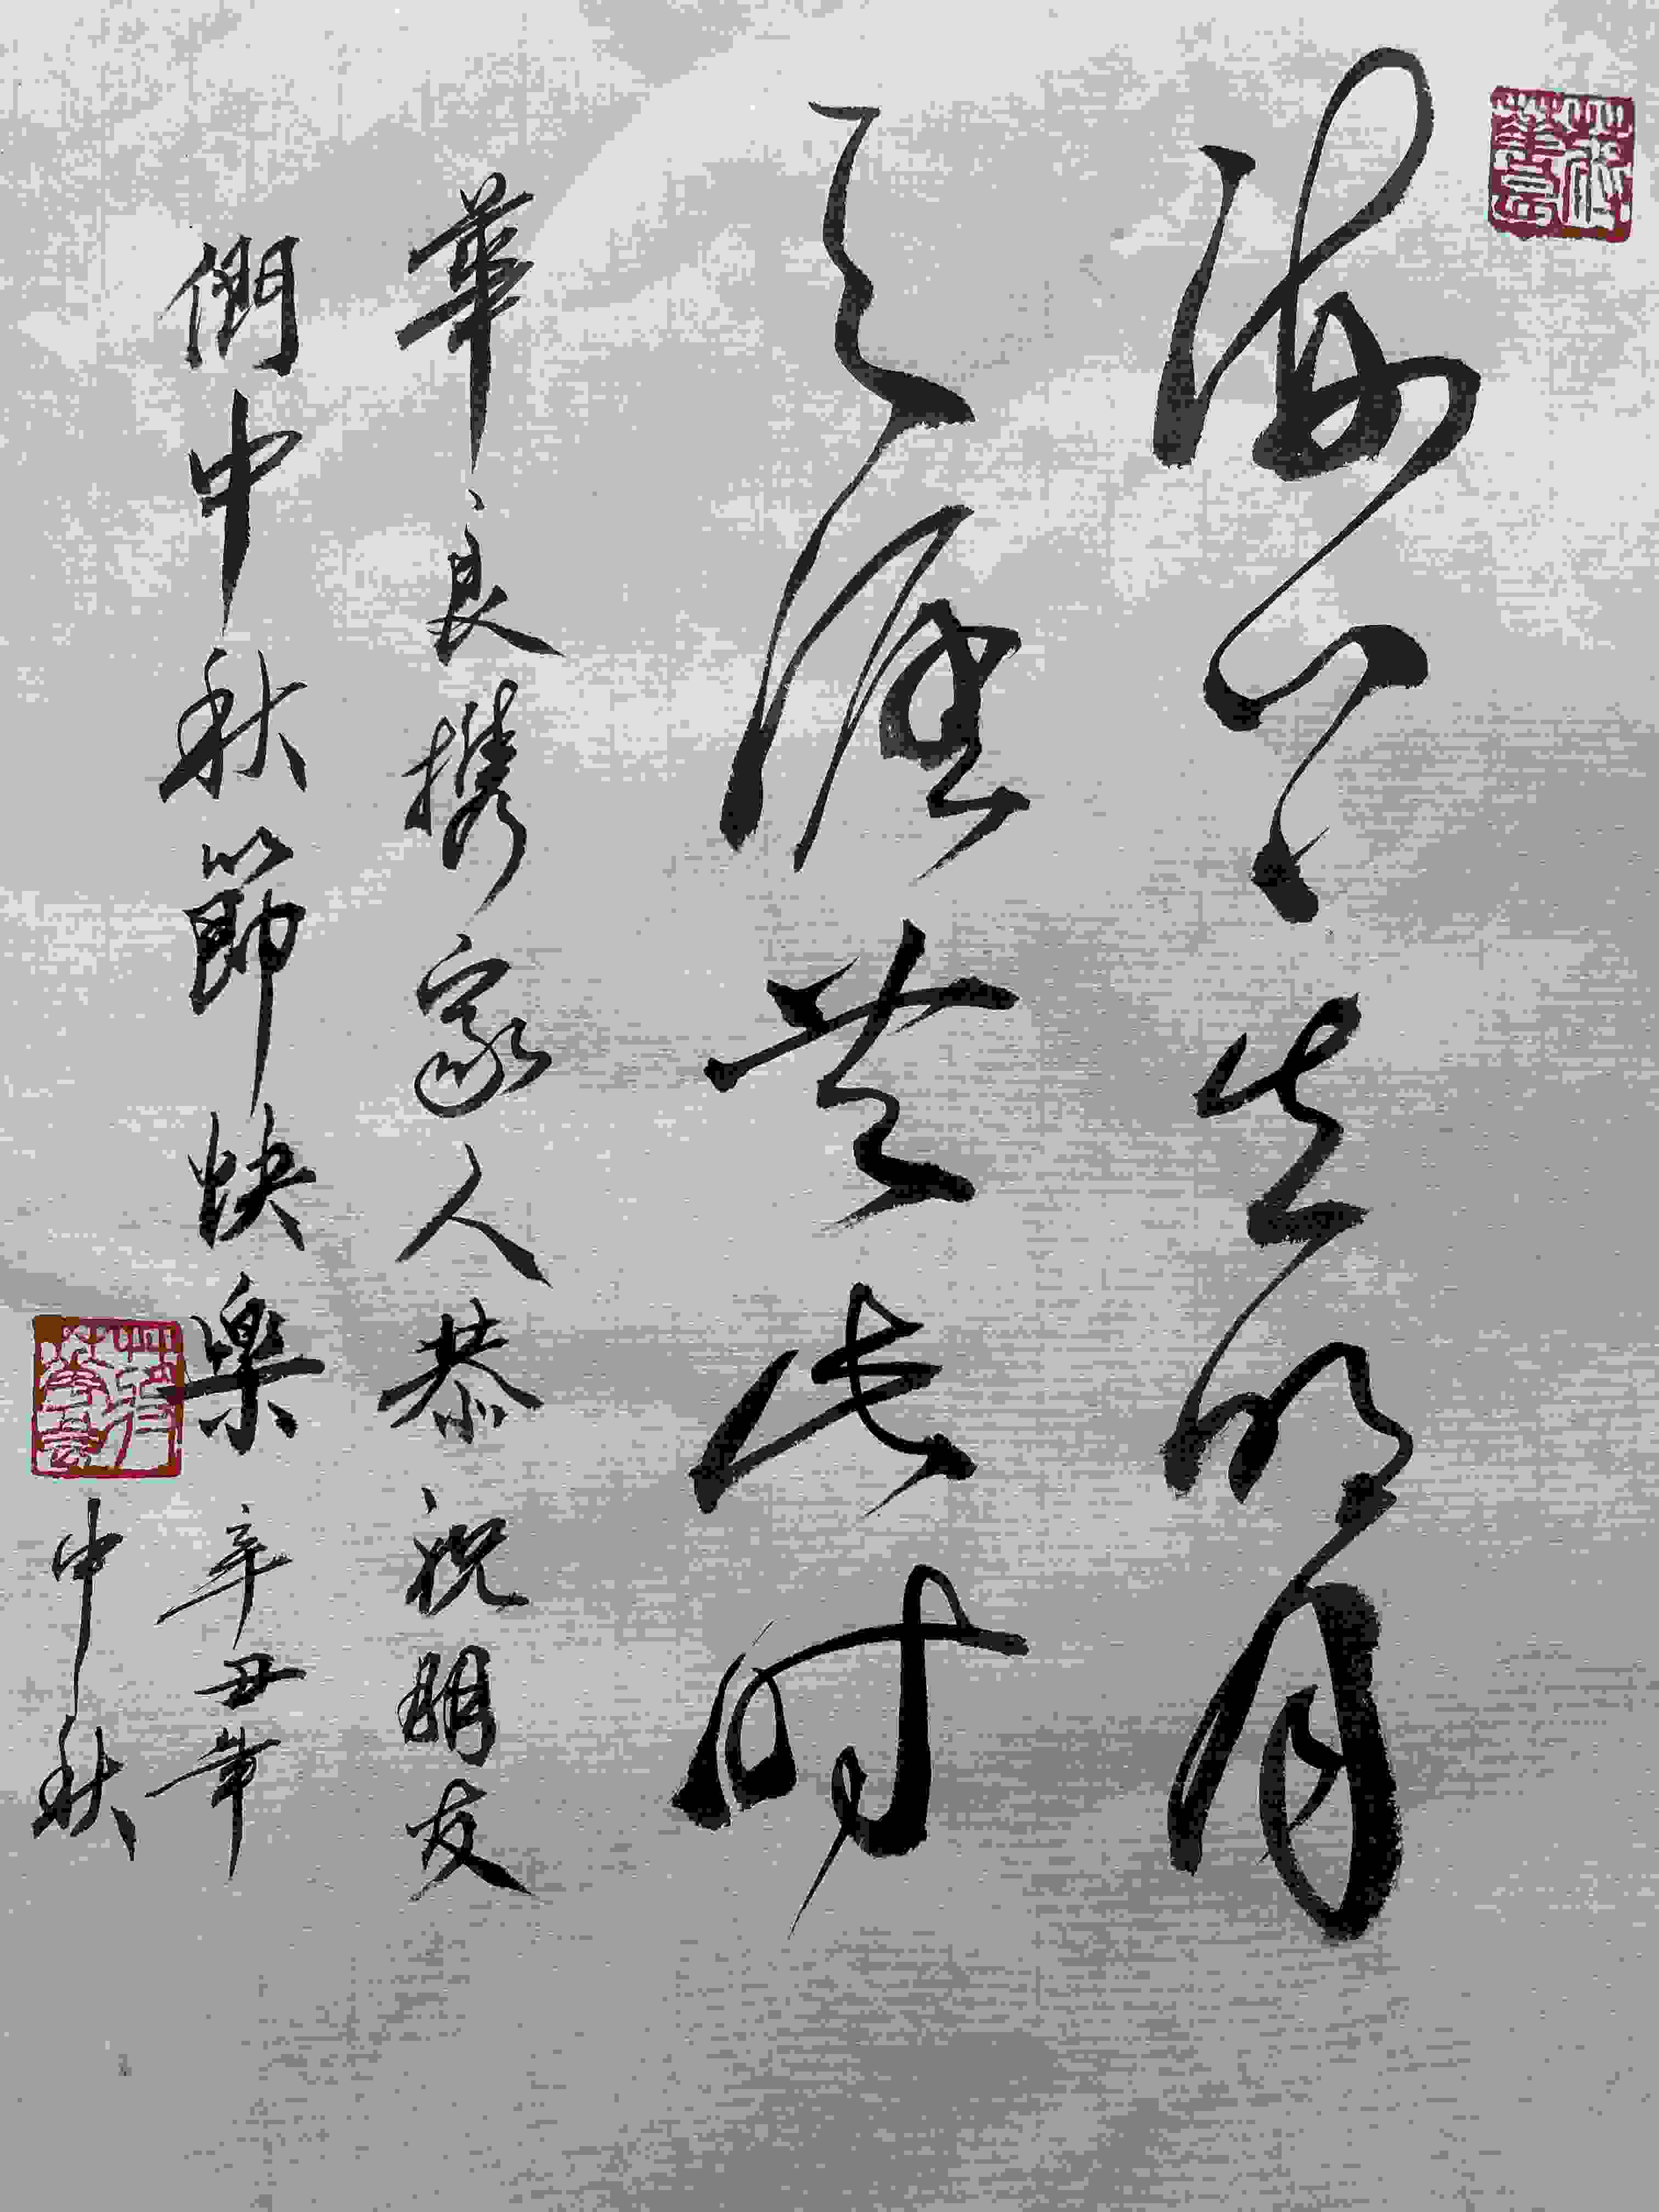 海上生明月
天涯共此时
華良携家人恭祝朋友
們中秋節快樂 辛丑年
中秋